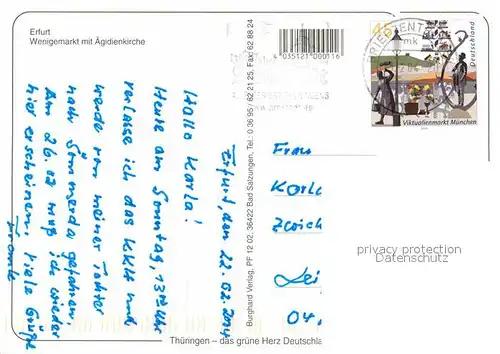 Erfurt
Wenigemarkt mit Ägidienkirche
4 035121 000116
45
Deutschland
Viktualienmarkt München
Burghard Verlag, PF 12 02, 36422 Bad Salzungen, Tel.: 0 36 95 / 62 21 25, Fax: 62 88 24
Erfurt, den 22.02.2004
Hallo Karla!
Heute am Sonntag, 13 Uhr
verlasse ich das KKH und
werde von meiner Tochter
nach Sömmerda gefahren.
Am 26.02 muß ich wieder
hier erscheinen. Viele Grüße
Frau
Karl
Zwick
Lei
04
privacy protection
Datenschutz
Thüringen – das grüne Herz Deutschla